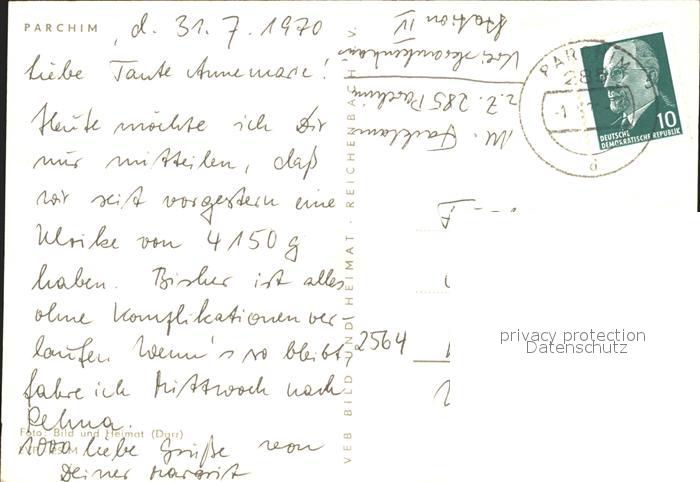 PARCHIM , d. 31. 7. 1970
Liebe Tante Annemarie!
Heute möchte ich Dir
nur mitteilen, daß
wir seit vorgestern eine
Ulrike von 4150 g
haben. Bisher ist alles
ohne Komplikationen ver-
laufen. Wenn's so bleibt,
fahre ich Mittwoch nach
Rehna.
Foto: Bild und Heimat (Darr)
1000 liebe Grüße von
Deiner Margrit
VEB BILD UND HEIMAT · REICHENBACH V.
M.
z.Z. 285 Parchim
Kreiskrankenhaus
Station IV
PAR
285
-1.
d
10
DEUTSCHE
DEMOKRATISCHE REPUBLIK
2564
privacy protection
Datenschutz